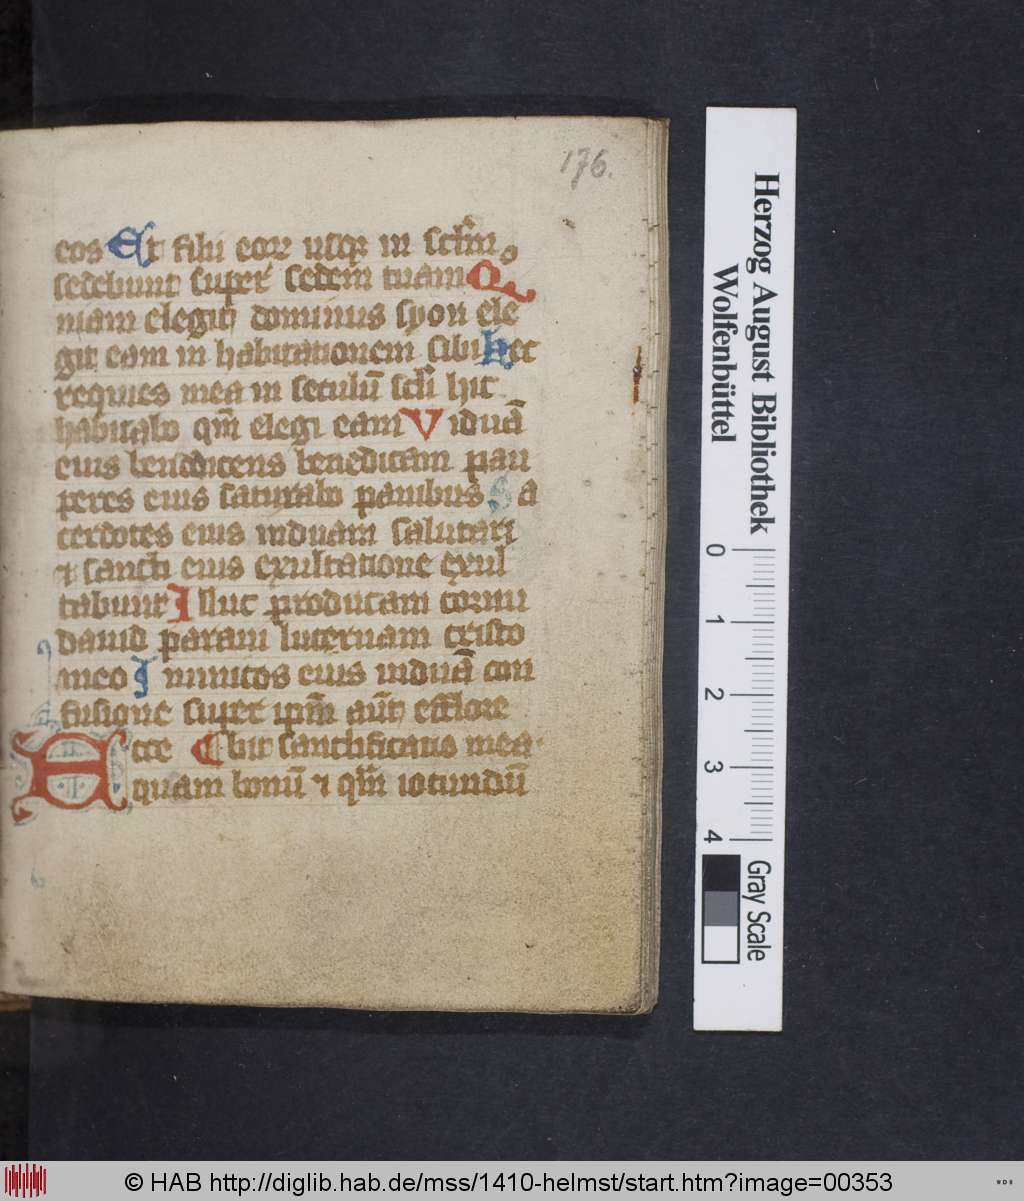 176.
eos Et filii eoꝝ usqꝫ in sclm̄
sedebunt super sedem tuam Qo
niam elegit dominus syon ele
git eam in habitationem sibi hec
requies mea in seculū scl̄i hic
habitabo qm̄ elegi eam Viduā
eius benedicens benedicam pau
peres eius saturabo panibus Sa
cerdotes eius induam salutari
⁊ sancti eius exultatione exul
tabunt Illuc producam cornu
dauid paraui lucernam cristo
meo Inimicos eius induā con
fusione super ipm̄ aūt efflore
Ecce bit sanctificatio mea
quam bonū ⁊ qm̄ iocundū
Herzog August Bibliothek
Wolfenbüttel
0 1 2 3 4
Gray Scale
© HAB http://diglib.hab.de/mss/1410-helmst/start.htm?image=00353